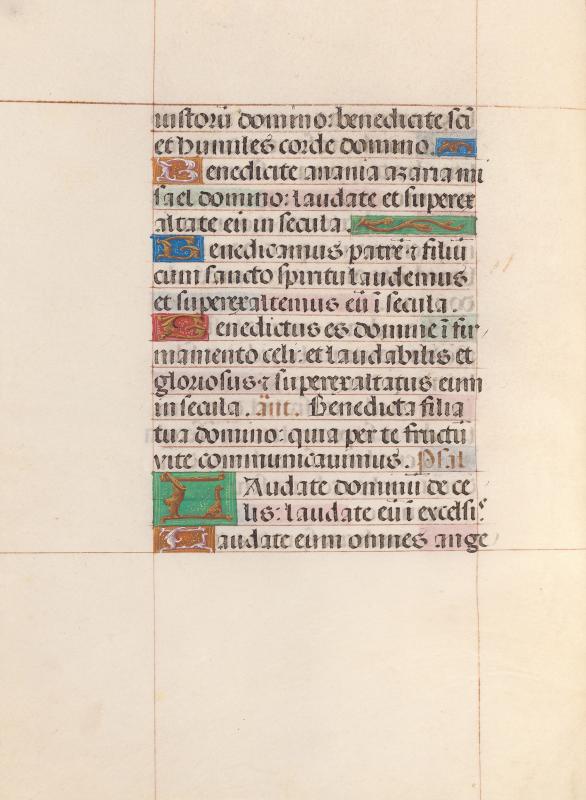 iustorū domino: benedicite scī
et humiles corde domino.
Benedicite anania azaria mi
sael domino: laudate et superex
altate eū in secula.
Benedicamus patrē ⁊ filiū
cum sancto spiritu laudemus
et superexaltemus eū ī secula.
Benedictus es domine ī fir
mamento celi: et laudabilis et
gloriosus ⁊ superexaltatus eum
in secula. ānt. Benedicta filia
tua domino: quia per te fructū
vite communicauimus. Psal
LAudate dominū de ce
lis: laudate eū ī excelsis.
Laudate eum omnes ange